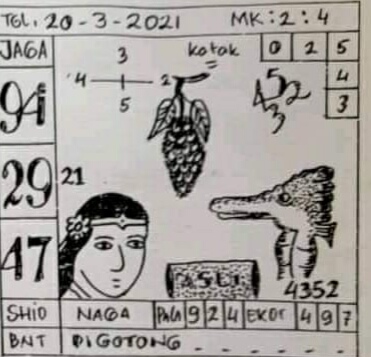 TGL. 20-3-2021 MK: 2 : 4
JAGA
3
4 2
5
kotak 0 2 5
4
3
94
4 5 2
3
29
21
47
ASLI
4352
SHIO NAGA PALA 9 2 4 EKOR 4 9 7
BNT DIGOTONG - - - -